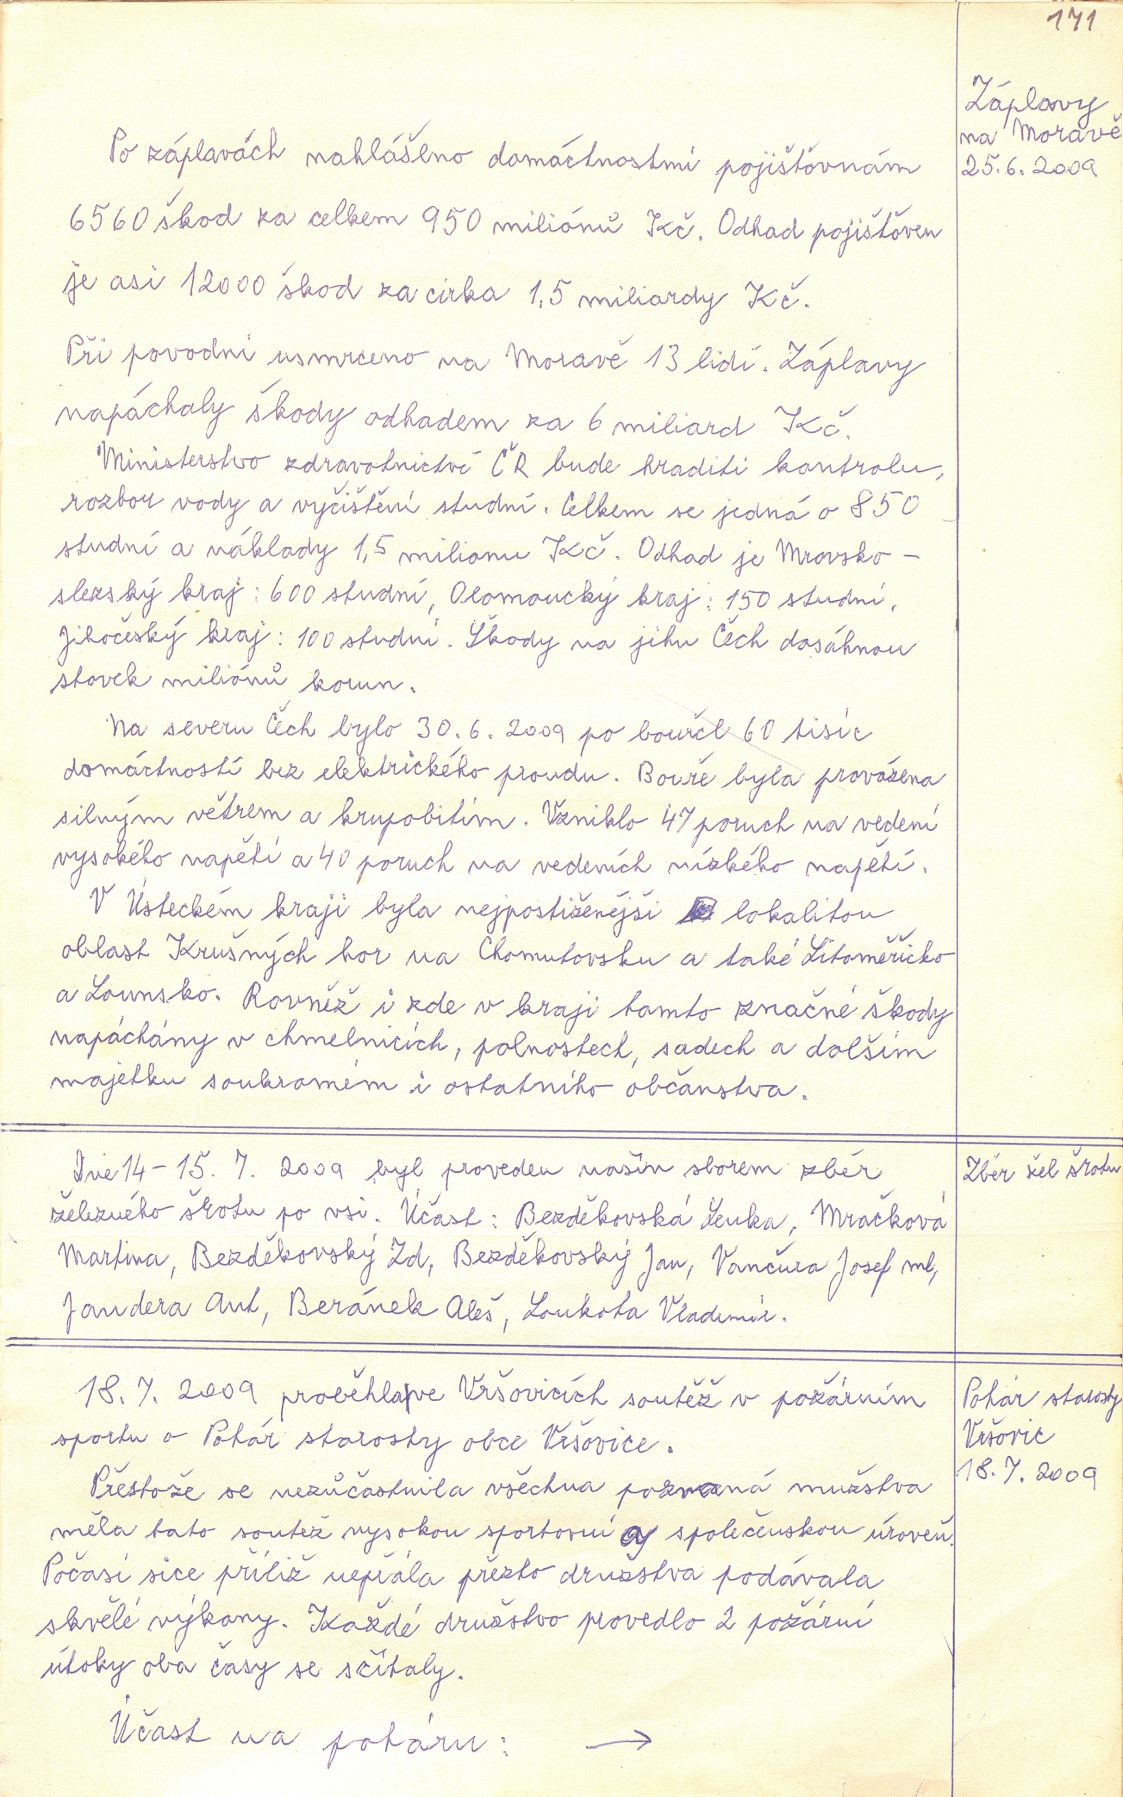 171
Záplavy
na Moravě
25.6.2009
Po záplavách nahlášeno domácnostmi pojišťovnám
6560 škod za celkem 950 miliónů Kč. Odhad pojišťoven
je asi 12000 škod za cirka 1,5 miliardy Kč.
Při povodni usmrceno na Moravě 13 lidí. Záplavy
napáchaly škody odhadem za 6 miliard Kč.
Ministerstvo zdravotnictví ČR bude hraditi kontrolu,
rozbor vody a vyčištění studní. Celkem se jedná o 850
studní a náklady 1,5 milionu Kč. Odhad je Mrovsko-
slezský kraj: 600 studní, Olomoucký kraj: 150 studní,
Jihočeský kraj: 100 studní. Škody na jihu Čech dosáhnou
stovek miliónů korun.
Na severu Čech bylo 30.6.2009 po bouřce 60 tisíc
domácností bez elektrického proudu. Bouře byla provázena
silným větrem a krupobitím. Vzniklo 47 poruch na vedení
vysokého napětí a 40 poruch na vedeních nízkého napětí.
V Ústeckém kraji byla nejpostiženější lokalitou
oblast Krušných hor na Chomutovsku a také Litoměřicko
a Lounsko. Rovněž i zde v kraji tamto značné škody
napáchány v chmelnicích, polnostech, sadech a dalším
majetku soukromém i ostatního občanstva.
Dne 14-15. 7. 2009 byl proveden naším sborem zběr
železného šrotu po vsi. Účast: Bezděkovská Lenka, Mračková
Martina, Bezděkovský Zd, Bezděkovský Jan, Vančura Josef ml,
Jandera Ant, Beránek Aleš, Loukota Vladimír.
Zběr žel šrotu
18.7.2009 proběhla ve Vršovicích soutěž v požárním
sportu o Pohár starosty obce Vršovice.
Pohár starosty
Vršovic
18.7.2009
Přestože se nezůčastnila všechna pozvaná mužstva
měla tato soutěž vysokou sportovní a společenskou úroveň.
Počasí sice příliž nepřála přezto družstva podávala
skvělé výkony. Každé družstvo provedlo 2 požární
útoky oba časy se sčítaly.
Účast na poháru: →